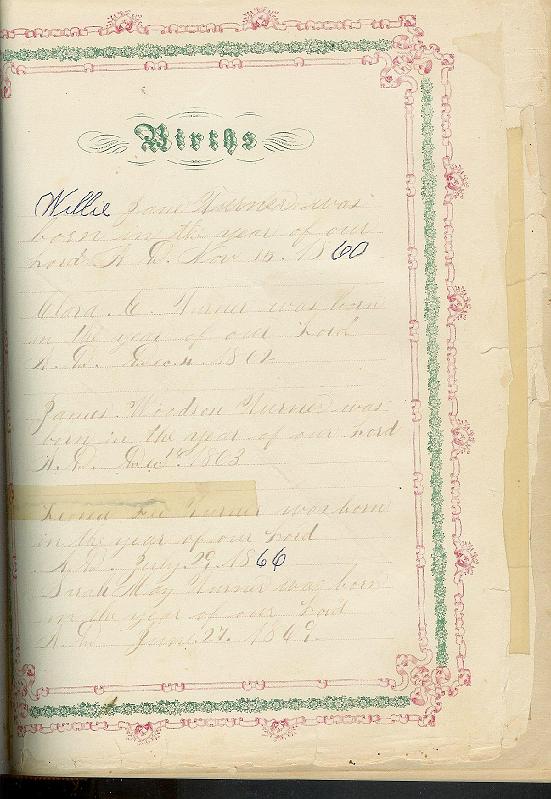 Births
Willie Jane Turner was
born in the year of our
Lord A. D. Nov 1860
Clara Turner was born
in the year of our Lord
A. D. 186
James Turner was
born in the year of our Lord
A. D. Dec 1863
Turner was born
in the year of our Lord
A. D. July 29. 1866
Sarah May Turner was born
in the year of our Lord
A. D. June 27. 1869.